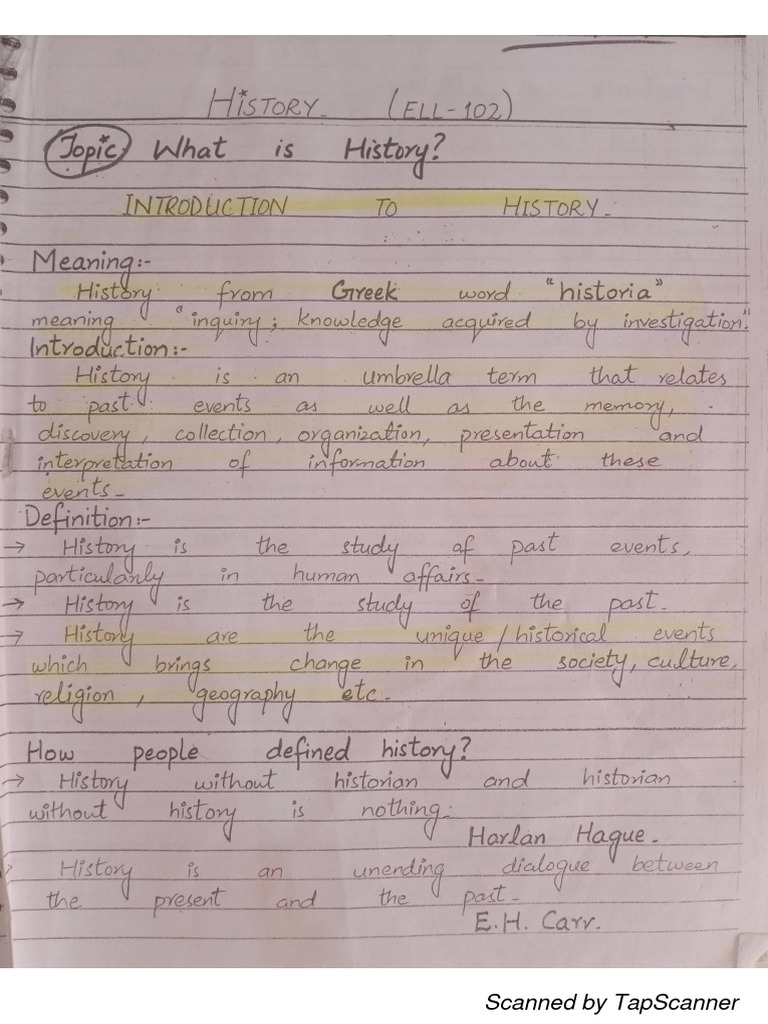 HISTORY (ELL-102)
Topic: What is History?
INTRODUCTION TO HISTORY
Meaning:-
History from Greek word "historia"
meaning "inquiry; knowledge acquired by investigation."
Introduction:-
History is an umbrella term that relates
to past events as well as the memory,
discovery, collection, organization, presentation and
interpretation of information about these
events.
Definition:-
→ History is the study of past events,
particularly in human affairs.
→ History is the study of the past.
→ History are the unique/historical events
which brings change in the society, culture,
religion, geography etc.
How people defined history?
→ History without historian and historian
without history is nothing.
Harlan Hague.
→ History is an unending dialogue between
the present and the past.
E.H. Carr.
Scanned by TapScanner